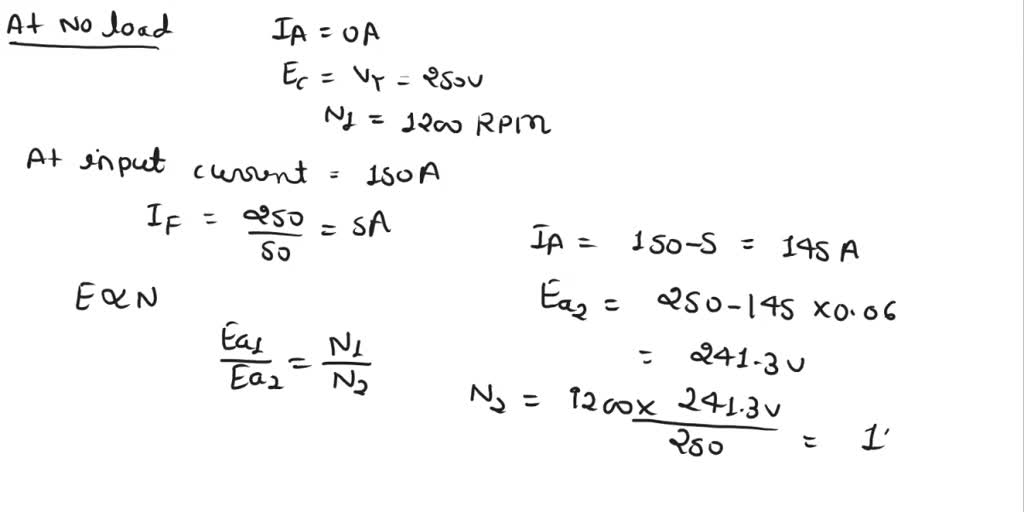 At No load
IA = 0A
Ec = VT = 250V
N1 = 1200 RPM
At input current = 150A
IF = 250/50 = 5A
IA = 150-5 = 145A
E∝N
Ea2 = 250-145 x0.06
= 241.3V
Ea1/Ea2 = N1/N2
N2 = 1200x 241.3V/250 = 1'